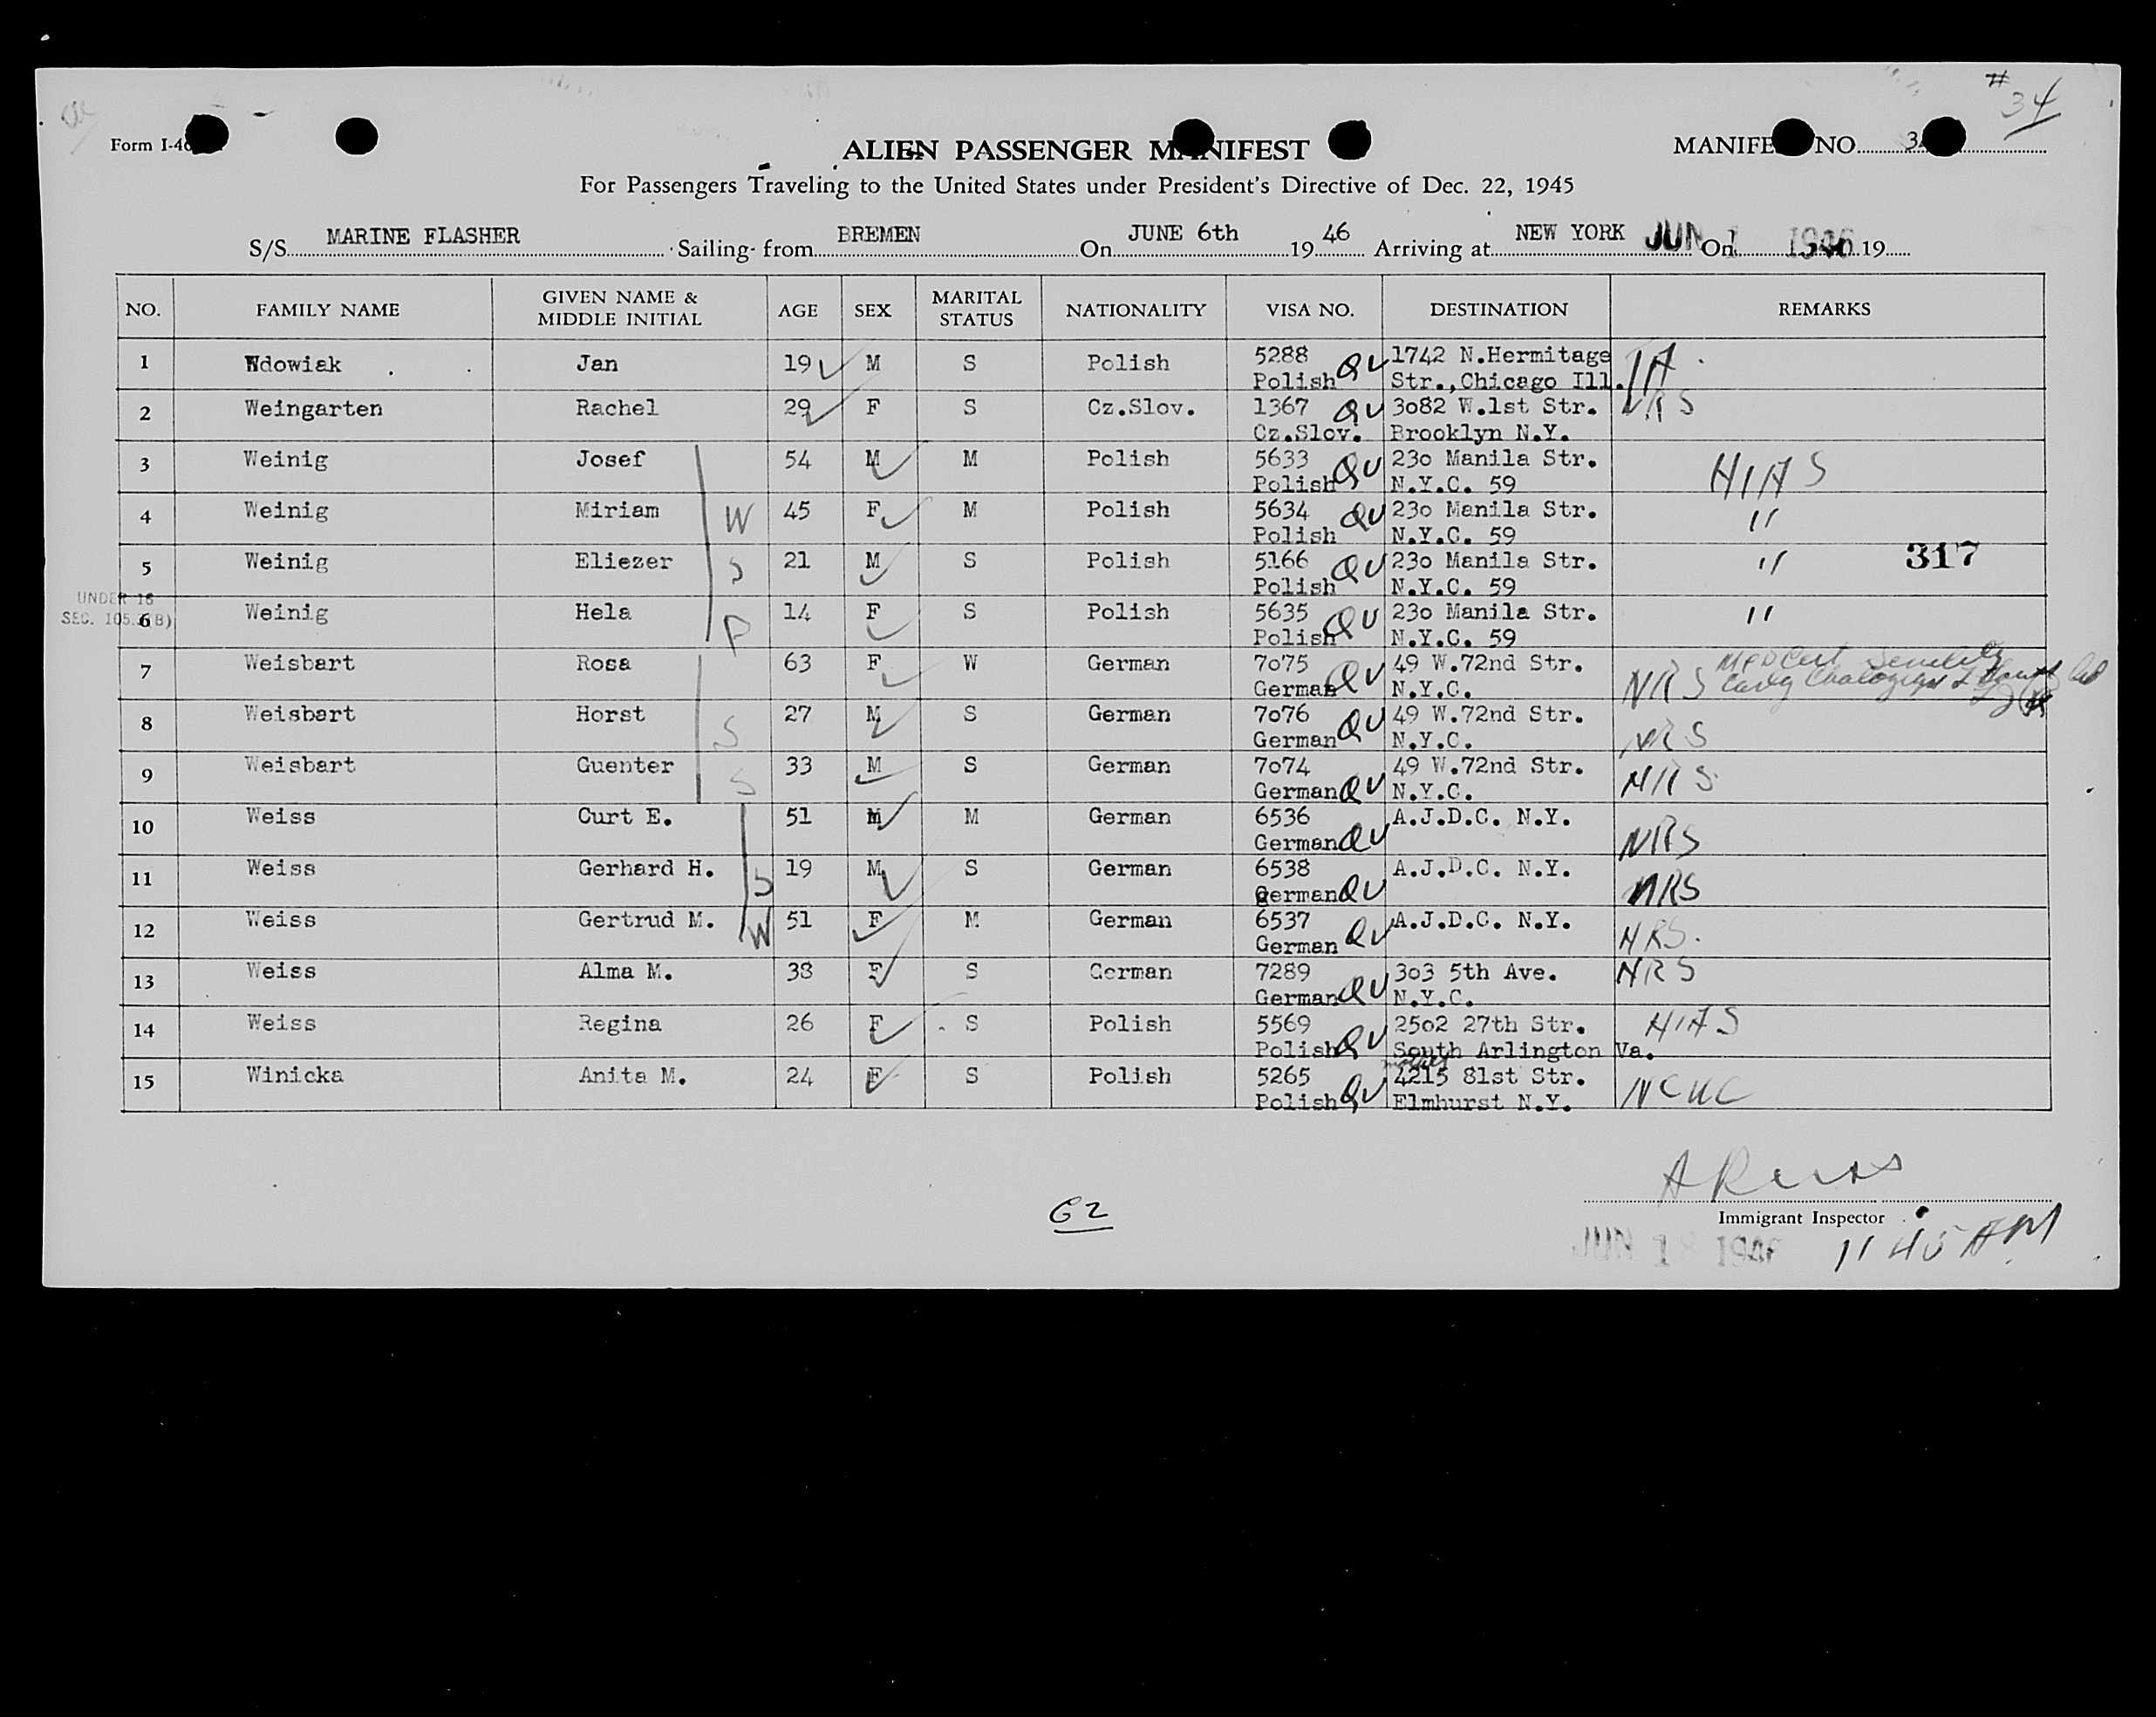 # 34
Form I-4
ALIEN PASSENGER MANIFEST
MANIFE NO. 3
For Passengers Traveling to the United States under President's Directive of Dec. 22, 1945
S/S MARINE FLASHER Sailing from BREMEN On JUNE 6th 19 46 Arriving at NEW YORK JUN 1 On 1946 19
NO. FAMILY NAME GIVEN NAME & MIDDLE INITIAL AGE SEX MARITAL STATUS NATIONALITY VISA NO. DESTINATION REMARKS
1 Wdowiak Jan 19 M S Polish 5288 QV 1742 N.Hermitage
Polish Str.,Chicago Ill.
2 Weingarten Rachel 29 F S Cz.Slov. 1367 QV 3082 W.1st Str. NRS
Cz.Slov. Brooklyn N.Y.
3 Weinig Josef 54 M M Polish 5633 QV 230 Manila Str. HIAS
Polish N.Y.C. 59
4 Weinig Miriam W 45 F M Polish 5634 QV 230 Manila Str. "
Polish N.Y.C. 59
5 Weinig Eliezer S 21 M S Polish 5166 QV 230 Manila Str. " 317
Polish N.Y.C. 59
UNDER 16
SEC. 105.3(B)
6 Weinig Hela D 14 F S Polish 5635 QV 230 Manila Str. "
Polish N.Y.C. 59
7 Weisbart Rosa 63 F W German 7075 QV 49 W.72nd Str. NRS Med Cert Senility
German N.Y.C.
8 Weisbart Horst S 27 M S German 7076 QV 49 W.72nd Str. NRS
German N.Y.C.
9 Weisbart Guenter S 33 M S German 7074 QV 49 W.72nd Str. NRS
German N.Y.C.
10 Weiss Curt E. 51 M M German 6536 QV A.J.D.C. N.Y. NRS
German
11 Weiss Gerhard H. S 19 M S German 6538 QV A.J.D.C. N.Y. NRS
German
12 Weiss Gertrud M. W 51 F M German 6537 QV A.J.D.C. N.Y. NRS.
German
13 Weiss Alma M. 38 F S German 7289 QV 303 5th Ave. NRS
German N.Y.C.
14 Weiss Regina 26 F S Polish 5569 QV 2502 27th Str. HIAS
Polish South Arlington Va.
15 Winicka Anita M. 24 F S Polish 5265 QV 4215 81st Str. NCWC
Polish Elmhurst N.Y.
G2
Immigrant Inspector
JUN 18 1946 11 45 AM